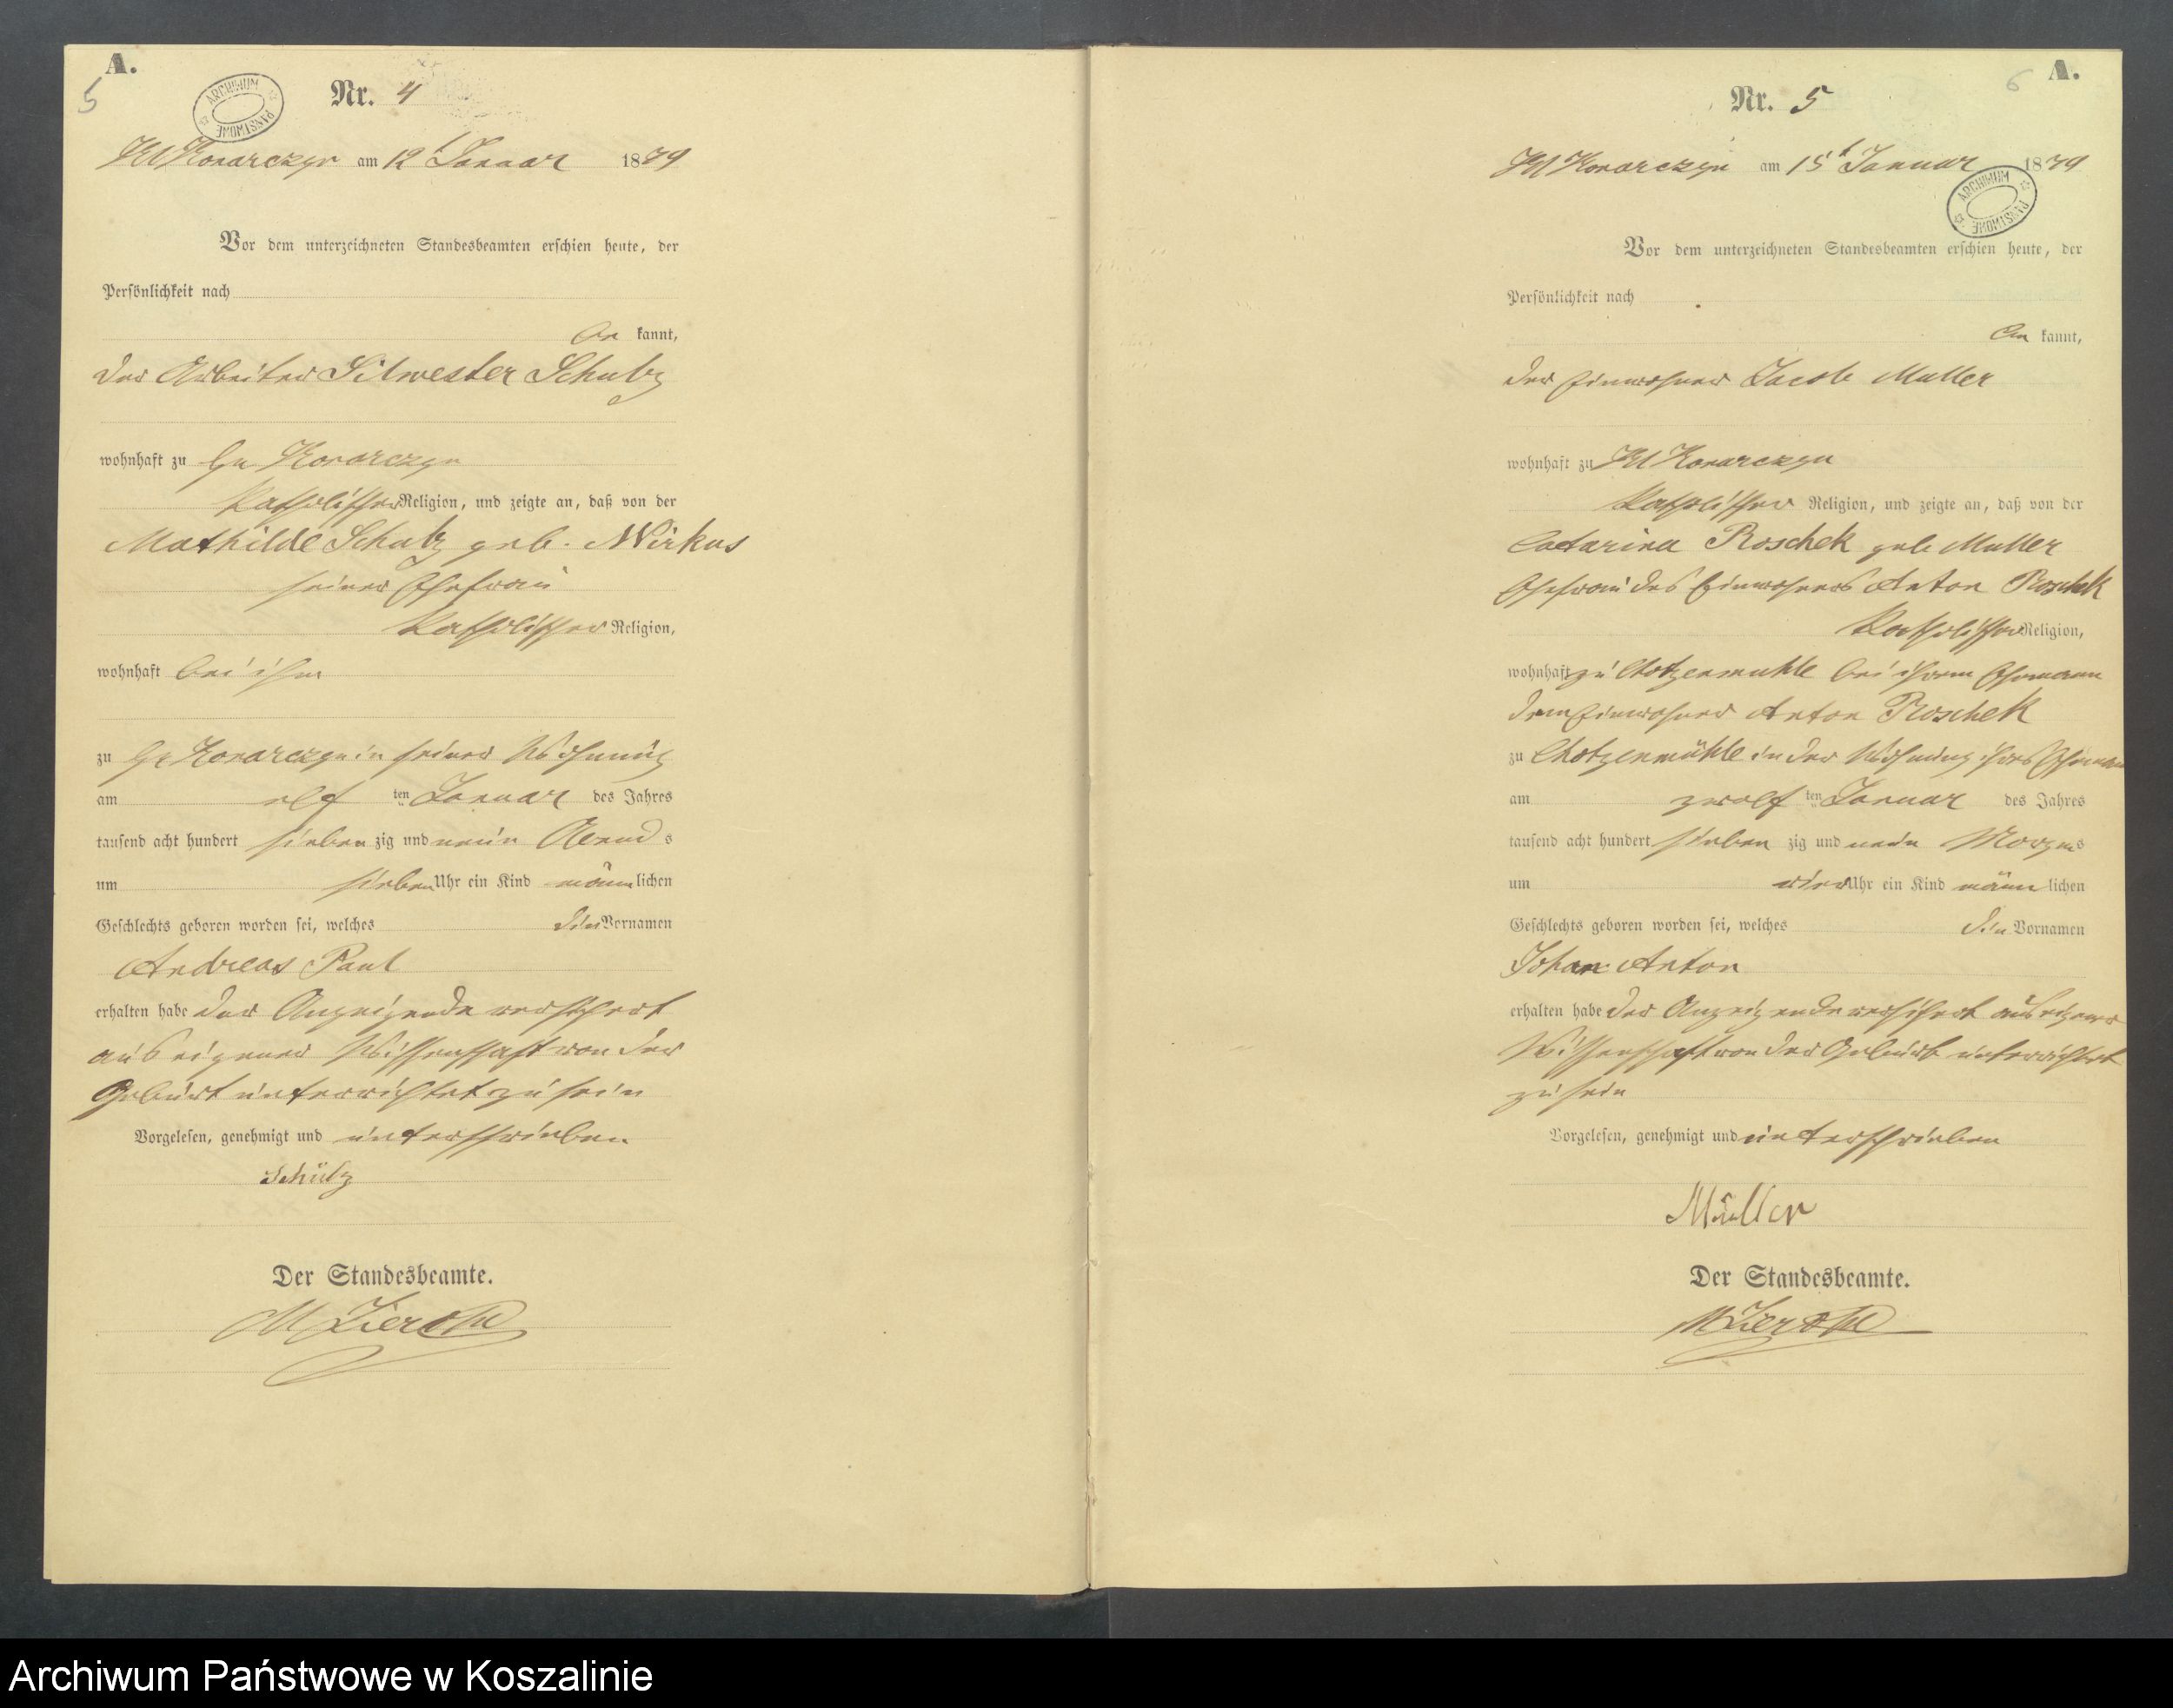 A.
5
ARCHIWUM PAŃSTWOWE
Nr. 4
Kl Konarczyn am 12t Januar 1879
Vor dem unterzeichneten Standesbeamten erschien heute, der
Persönlichkeit nach
be kannt,
der Arbeiter Silwester Schulz
wohnhaft zu Gr Konarczyn
katholischer Religion, und zeigte an, daß von der
Mathilde Schulz geb. Wirkus
seiner Ehefrau
katholischer Religion,
wohnhaft bei ihm
zu Gr Konarczyn in seiner Wohnung
am elf ten Januar des Jahres
tausend acht hundert sieben zig und neun Abend s
um sieben Uhr ein Kind männ lichen
Geschlechts geboren worden sei, welches die Vornamen
Andreas Paul
erhalten habe der Anzeigende versichert
aus eigener Wissenschaft von der
Geburt unterrichtet zu sein
Vorgelesen, genehmigt und unterschrieben
Schulz
Der Standesbeamte.
6
A.
Nr. 5
Kl Konarczyn am 15t Januar 1879
ARCHIWUM PAŃSTWOWE
Vor dem unterzeichneten Standesbeamten erschien heute, der
Persönlichkeit nach
be kannt,
der Einwohner Jacob Muller
wohnhaft zu Kl Konarczyn
katholischer Religion, und zeigte an, daß von der
Catarina Roschek geb Muller
Ehefrau des Einwohners Anton Roschek
katholischer Religion,
wohnhaft zu Chotzenmuhle bei ihrem Ehemann
dem Einwohner Anton Roschek
zu Chotzenmühle in der Wohnung ihres Ehemann
am zwolf ten Januar des Jahres
tausend acht hundert sieben zig und neun Morgens
um vier Uhr ein Kind männ lichen
Geschlechts geboren worden sei, welches die Vornamen
Johan Anton
erhalten habe der Anzeigende versichert aus eigener
Wissenschaft von der Geburt unterrichtet
zu sein
Vorgelesen, genehmigt und unterschrieben
Müller
Der Standesbeamte.
Archiwum Państwowe w Koszalinie